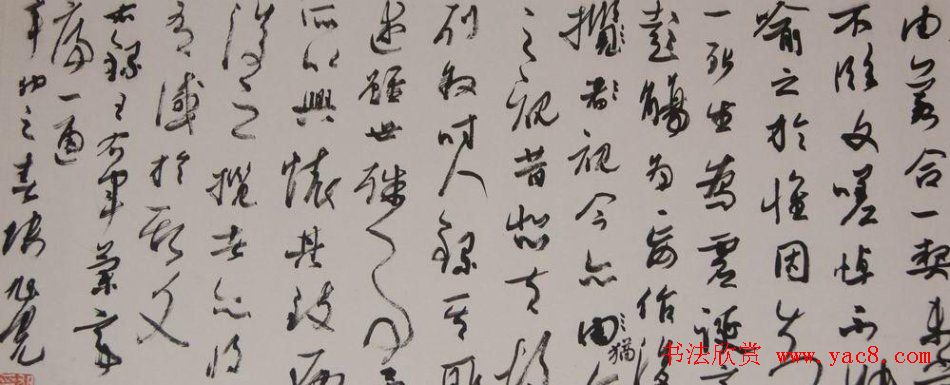 由若合一契未
不臨文嗟悼不
喻之於懷固知
一死生為虛誕
彭殤為妄作後
攬者視今亦由
猶
之視昔悲夫故
列叙時人錄其所
述雖世殊
所以興懷其致
後之攬者亦將
有感於斯文
右錄王右軍蘭亭
序一通
書法欣赏 www.yac8.com